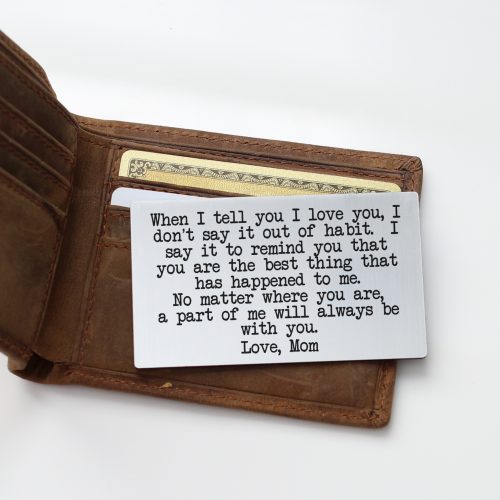 When I tell you I love you, I
don't say it out of habit. I
say it to remind you that
you are the best thing that
has happened to me.
No matter where you are,
a part of me will always be
with you.
Love, Mom